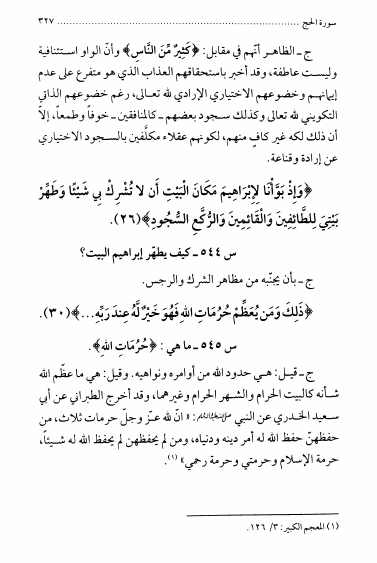 سورة الحج ........................................................ ٣٢٧
ج ـ الظاهر أنّهم في مقابل: ﴿كَثِيرٌ مِّنَ النَّاسِ﴾ وأنّ الواو استئنافية
وليست عاطفة، وقد أخبر باستحقاقهم العذاب الذي هو متفرع على عدم
إيمانهم وخضوعهم الاختياري الإرادي لله تعالى، رغم خضوعهم الذاتي
التكويني لله تعالى وكذلك سجود بعضهم ـ كالمنافقين ـ خوفاً وطمعاً، إلّا
أن ذلك لكه غير كافٍ منهم، لكونهم عقلاء مكلّفين بالسجود الاختياري
عن إرادة وقناعة.
﴿وَإِذْ بَوَّأْنَا لِإِبْرَاهِيمَ مَكَانَ الْبَيْتِ أَن لا تُشْرِكْ بِي شَيْئًا وَطَهِّرْ
بَيْتِيَ لِلطَّائِفِينَ وَالْقَائِمِينَ وَالرُّكَّعِ السُّجُودِ﴾(٢٦).
س ٥٤٤ ـ كيف يطهّر إبراهيم البيت؟
ج ـ بأن يجنّبه من مظاهر الشرك والرجس.
﴿ذَلِكَ وَمَن يُعَظِّمْ حُرُمَاتِ اللهِ فَهُوَ خَيْرٌ لَّهُ عِندَ رَبِّهِ ...﴾(٣٠).
س ٥٤٥ ـ ما هي: ﴿حُرُمَاتِ اللهِ﴾.
ج ـ قيل: هي حدود الله من أوامره ونواهيه. وقيل: هي ما عظّم الله
شأنه كالبيت الحرام والشهر الحرام وغيرهما، وقد أخرج الطبراني عن أبي
سعيد الخدري عن النبي ﷺ: «انّ لله عزّ وجلّ حرمات ثلاث، من
حفظهنّ حفظ الله له أمر دينه ودنياه، ومن لم يحفظهن لم يحفظ الله له شيئاً،
حرمة الإسلام وحرمتي وحرمة رحمي» (١).
(١) المعجم الكبير: ٣/ ١٢٦.